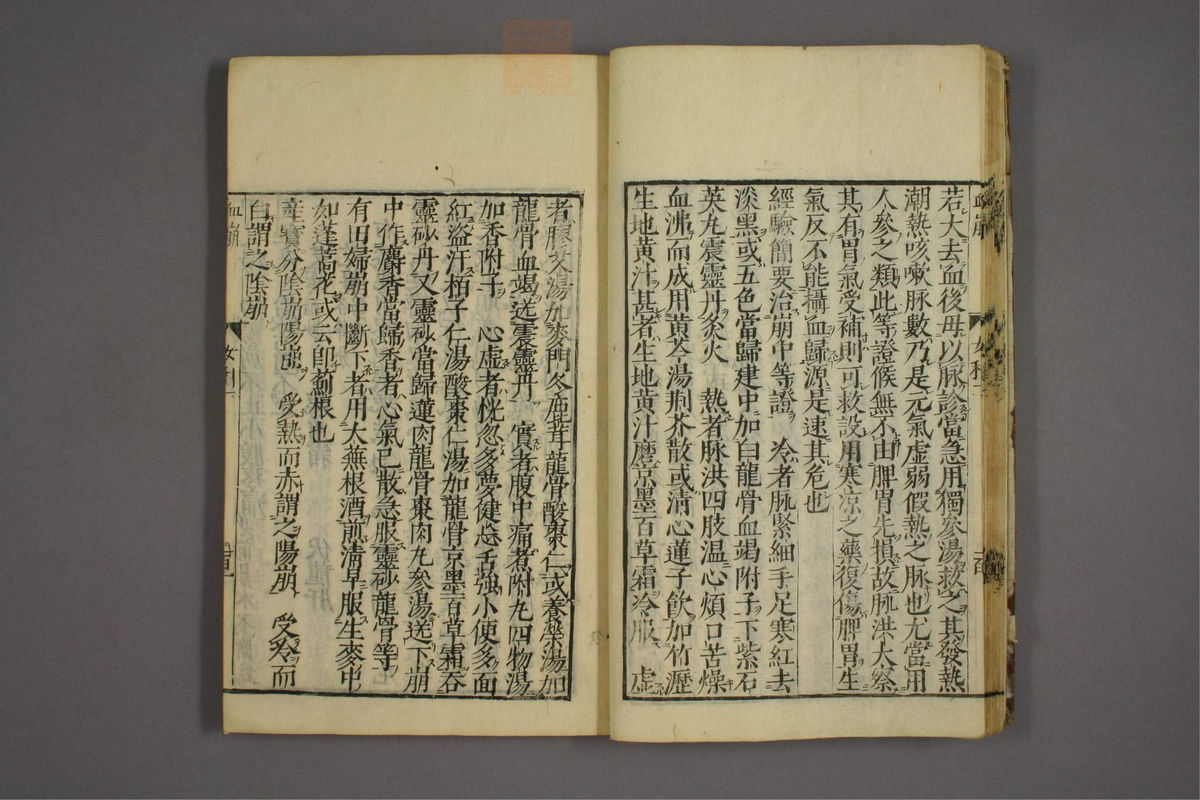 若大去血後毋以脉診當急用獨參湯救之其發熱
潮熱咳嗽脉數乃是元氣虛弱假熱之脉也尤當用
人參之類此等證候無不由脾胃先損故脉洪大察
其有胃氣受補則可救設用寒凉之藥復傷脾胃生
氣反不能攝血歸源是速其危也
經驗簡要治崩中等證 冷者脉緊細手足寒紅去
淡黑或五色當歸建中加白龍骨血竭附子下紫石
英丸震靈丹灸火 熱者脉洪四肢温心煩口苦燥
血沸而成用黃芩湯荆芥散或清心蓮子飲加竹瀝
生地黃汁甚者生地黃汁磨京墨百草霜冷服 虛
者膠艾湯加麥門冬鹿茸龍骨酸棗仁或養榮湯加
龍骨血竭送震靈丹 實者腹中痛者附九四物湯
加香附子 心虛者恍忽多夢健忘舌強小便多面
紅盜汗栢子仁湯酸棗仁湯加龍骨京墨百草霜吞
靈砂丹又靈砂當歸蓮肉龍骨棗肉丸參湯送下崩
中作麝香當歸香者心氣已散急服靈砂龍骨等
有田婦崩中斷下者用大蕪根酒煎清早服生麥中
如蓬蒿花或云卽薊根也
産寶分陰崩陽崩 受熱而赤謂之陽崩 受冷而
白謂之陰崩
血崩